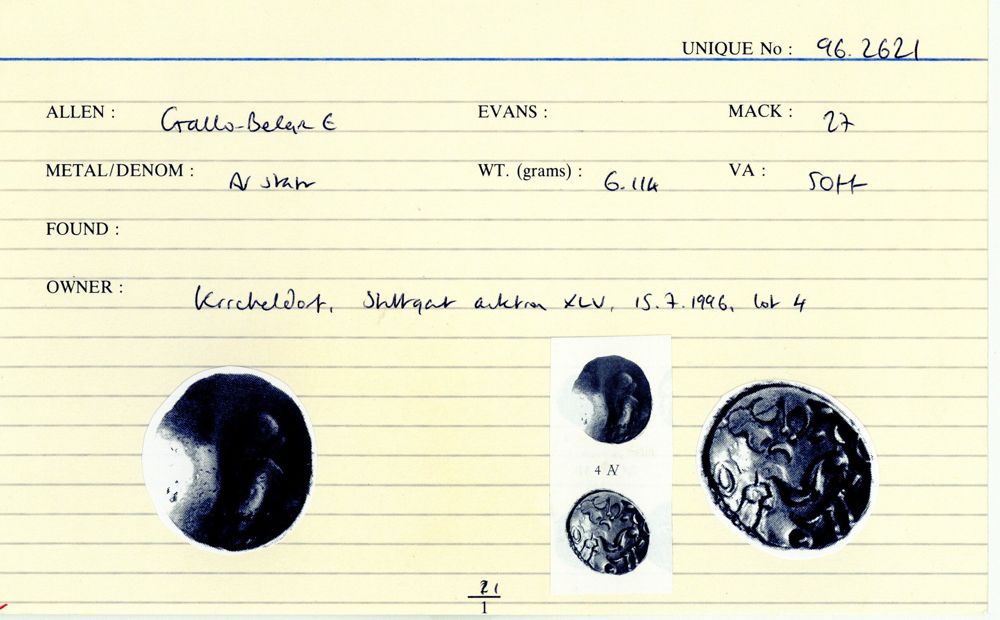 UNIQUE No : 96.2621
ALLEN : Gallo-Belgic E EVANS : MACK : 27
METAL/DENOM : AV stater WT. (grams) : 6.114 VA :
FOUND :
OWNER : Kricheldorf, Stuttgart auktion XLV, 15.7.1996, lot 4
4 AV
21
1